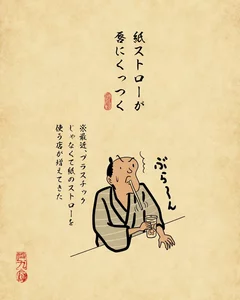 紙ストローが
唇にくっつく
※最近、プラスチック
じゃなくて紙のストローを
使う店が増えてきた
ぶらーん